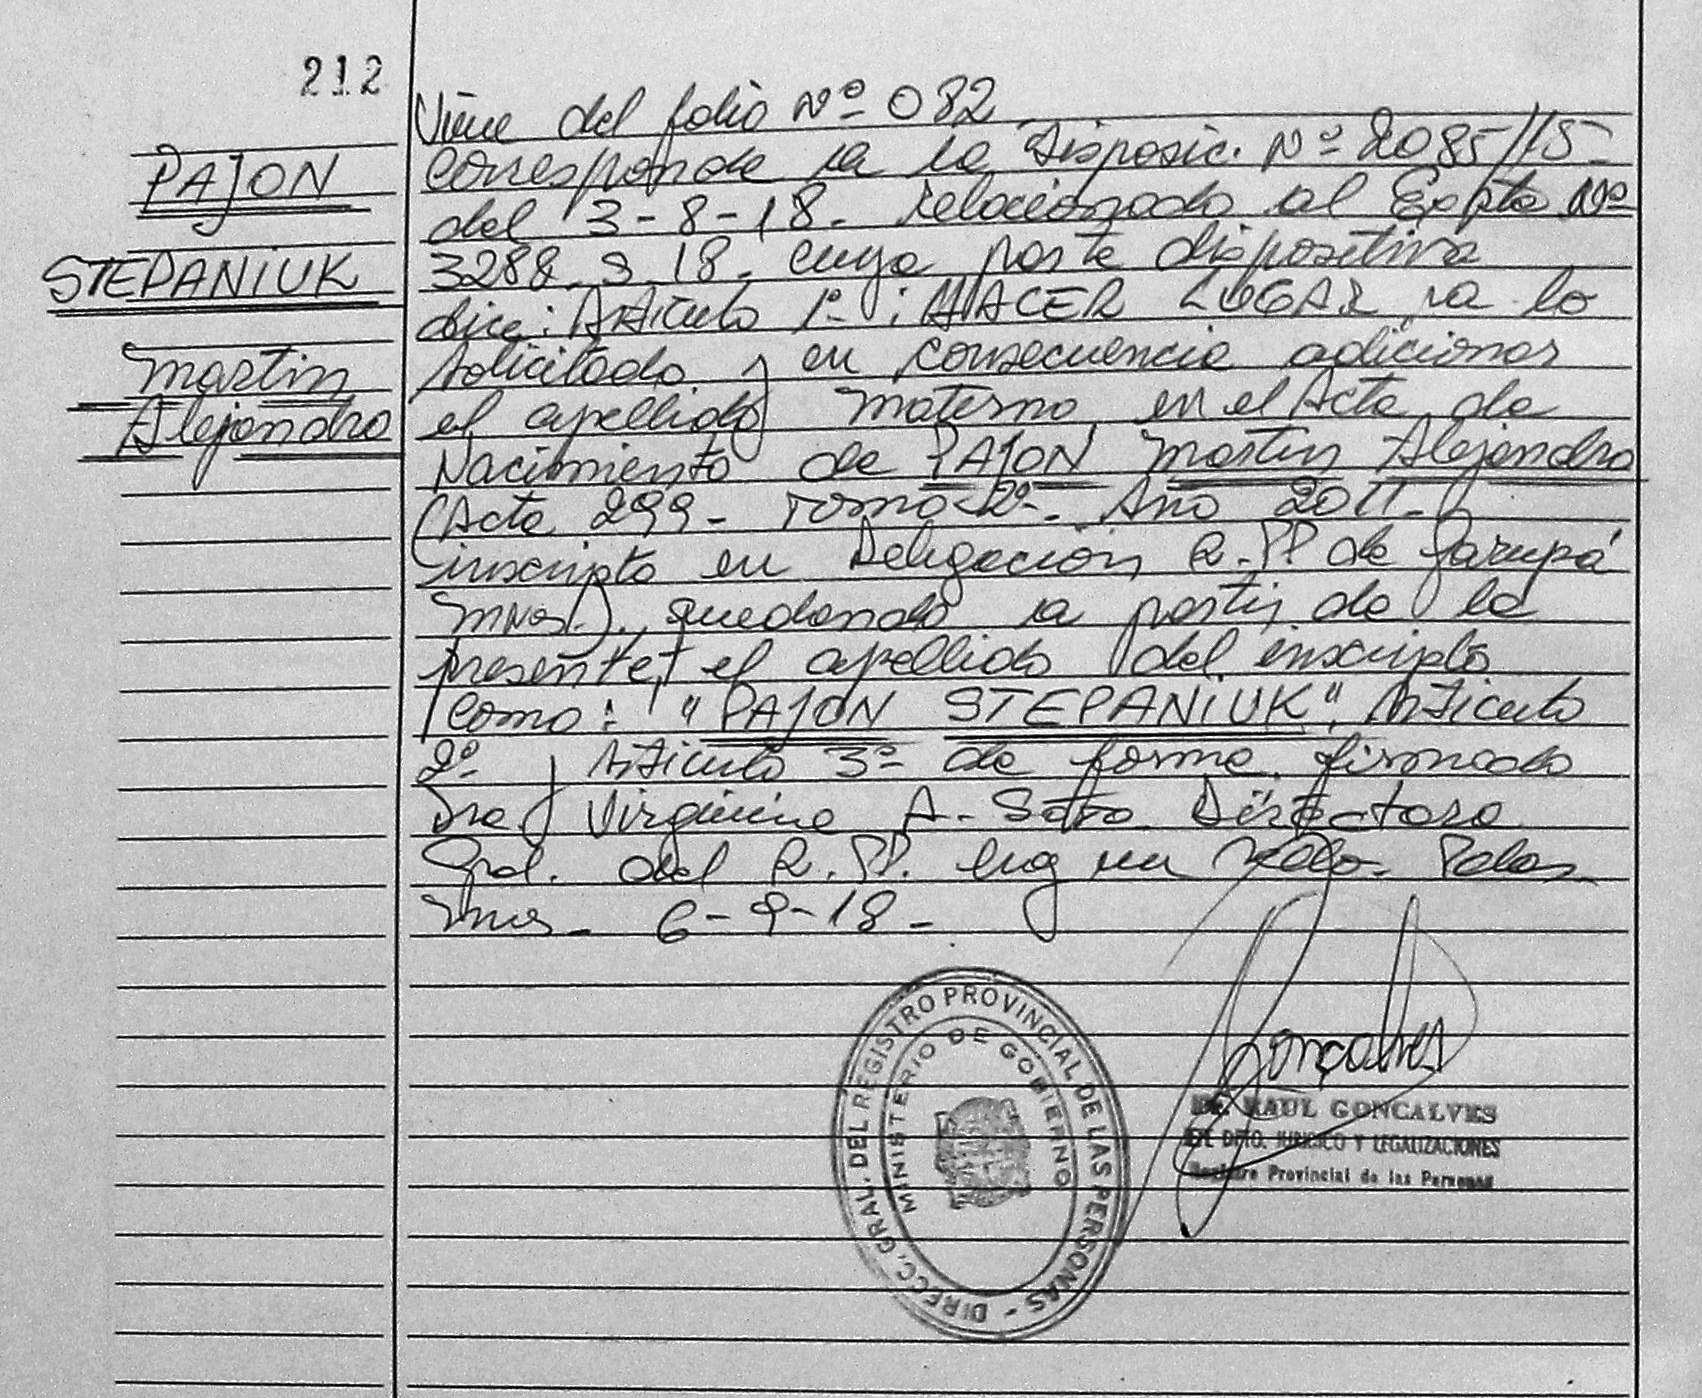 212
PAJON
STEPANIUK
Martin
Alejandro
Viene del folio Nº 082
Corresponde a la Disposic. Nº 2085/15-
del 3-8-18- relacionado al Expte Nº
3288 S 18- cuya parte dispositiva
dice: Articulo 1º: HACER LUGAR a lo
solicitado y en consecuencia adicionar
el apellido materno en el Acta de
Nacimiento de PAJON Martin Alejandro
(Acta 299- Tomo 2º-. Año 2011-
inscripto en Delegación R.PP. de Garupá
Mnes.)., quedando a partir de la
presente, el apellido del inscripto
como: "PAJON STEPANIUK". Articulo
2º y Articulo 3º de forma. firmado
Dra Virginia A. Soto Directora
Gral. del R.PP. Hay un sello. Pdas
Mnes- 6-9-18-
Goncalves
Dr. RAUL GONCALVES
DPTO. JURIDICO Y LEGALIZACIONES
Registro Provincial de las Personas
DIRECC. GRAL. DEL REGISTRO PROVINCIAL DE LAS PERSONAS -
MINISTERIO DE GOBIERNO